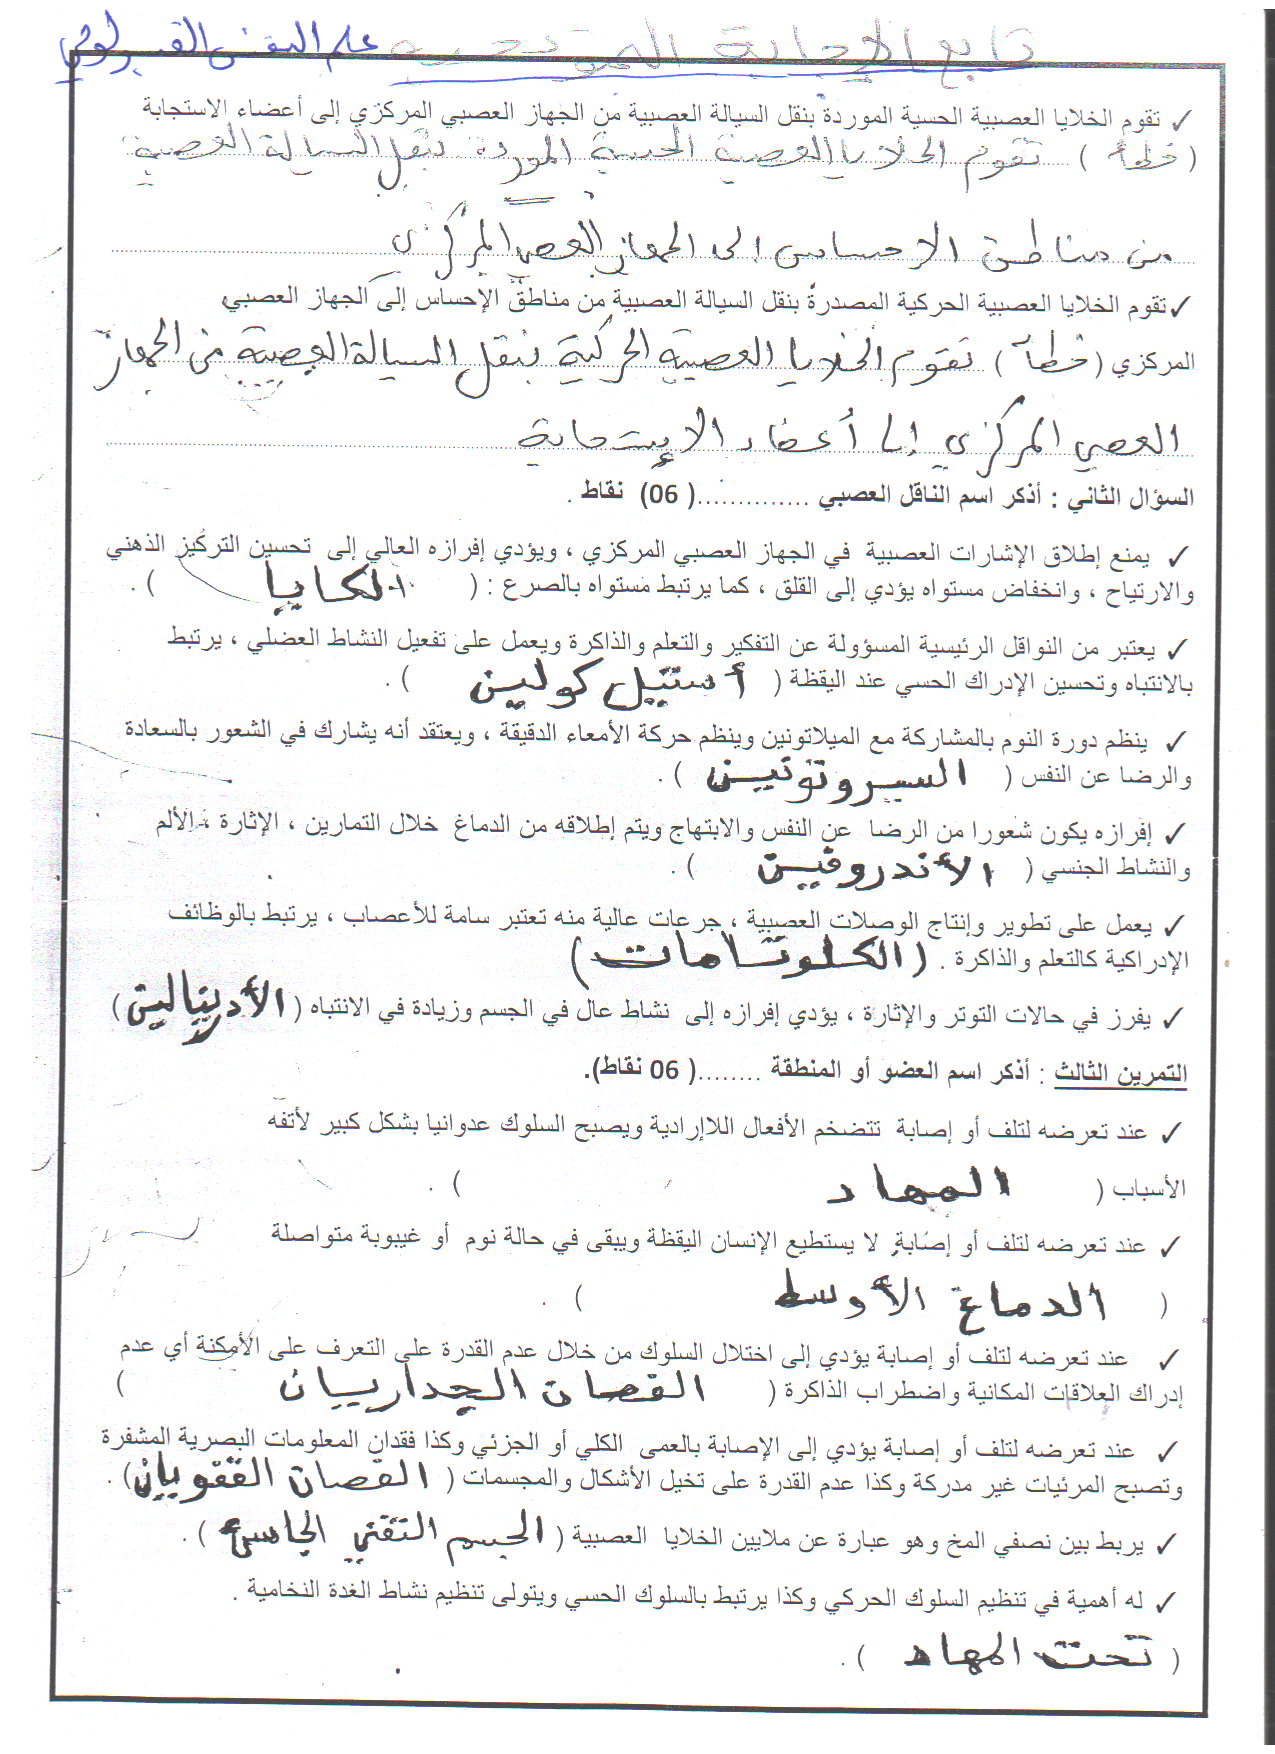 تابع الإجابة النموذجية علم النفس الفسيولوجي
✓ تقوم الخلايا العصبية الحسية الموردة بنقل السيالة العصبية من الجهاز العصبي المركزي إلى أعضاء الاستجابة
( خطأ ) تقوم الخلايا العصبية الحسية الموردة بنقل السيالة العصبية
من مناطق الاحساس الى الجهاز العصبي المركزي
✓ تقوم الخلايا العصبية الحركية المصدرة بنقل السيالة العصبية من مناطق الإحساس إلى الجهاز العصبي
المركزي ( خطأ ) تقوم الخلايا العصبية الحركية بنقل السيالة العصبية من الجهاز
العصبي المركزي إلى أعضاء الإستجابة
السؤال الثاني : أذكر اسم الناقل العصبي .............( 06) نقاط .
✓ يمنع إطلاق الإشارات العصبية في الجهاز العصبي المركزي ، ويؤدي إفرازه العالي إلى تحسين التركيز الذهني
والارتياح ، وانخفاض مستواه يؤدي إلى القلق ، كما يرتبط مستواه بالصرع : ( الكابا ) .
✓ يعتبر من النواقل الرئيسية المسؤولة عن التفكير والتعلم والذاكرة ويعمل على تفعيل النشاط العضلي ، يرتبط
بالانتباه وتحسين الإدراك الحسي عند اليقظة ( أستيل كولين ) .
✓ ينظم دورة النوم بالمشاركة مع الميلاتونين وينظم حركة الأمعاء الدقيقة ، ويعتقد أنه يشارك في الشعور بالسعادة
والرضا عن النفس ( السيروتونين ) .
✓ إفرازه يكون شعورا من الرضا عن النفس والابتهاج ويتم إطلاقه من الدماغ خلال التمارين ، الإثارة ، الألم
والنشاط الجنسي ( الأندروفين ) .
✓ يعمل على تطوير وإنتاج الوصلات العصبية ، جرعات عالية منه تعتبر سامة للأعصاب ، يرتبط بالوظائف
الإدراكية كالتعلم والذاكرة . (الكلوتامات)
✓ يفرز في حالات التوتر والإثارة ، يؤدي إفرازه إلى نشاط عال في الجسم وزيادة في الانتباه ( الأدرينالين )
التمرين الثالث : أذكر اسم العضو أو المنطقة ........( 06 نقاط).
✓ عند تعرضه لتلف أو إصابة تتضخم الأفعال اللاإرادية ويصبح السلوك عدوانيا بشكل كبير لأتفه
الأسباب ( المهاد ) .
✓ عند تعرضه لتلف أو إصابة لا يستطيع الإنسان اليقظة ويبقى في حالة نوم أو غيبوبة متواصلة
( الدماغ الأوسط ) .
✓ عند تعرضه لتلف أو إصابة يؤدي إلى اختلال السلوك من خلال عدم القدرة على التعرف على الأمكنة أي عدم
إدراك العلاقات المكانية واضطراب الذاكرة ( الفصان الجداريان )
✓ عند تعرضه لتلف أو إصابة يؤدي إلى الإصابة بالعمى الكلي أو الجزئي وكذا فقدان المعلومات البصرية المشفرة
وتصبح المرئيات غير مدركة وكذا عدم القدرة على تخيل الأشكال والمجسمات ( الفصان القفويان ) .
✓ يربط بين نصفي المخ وهو عبارة عن ملايين الخلايا العصبية ( الجسم الثفني الجاسئ ) .
✓ له أهمية في تنظيم السلوك الحركي وكذا يرتبط بالسلوك الحسي ويتولى تنظيم نشاط الغدة النخامية .
( تحت المهاد ) .